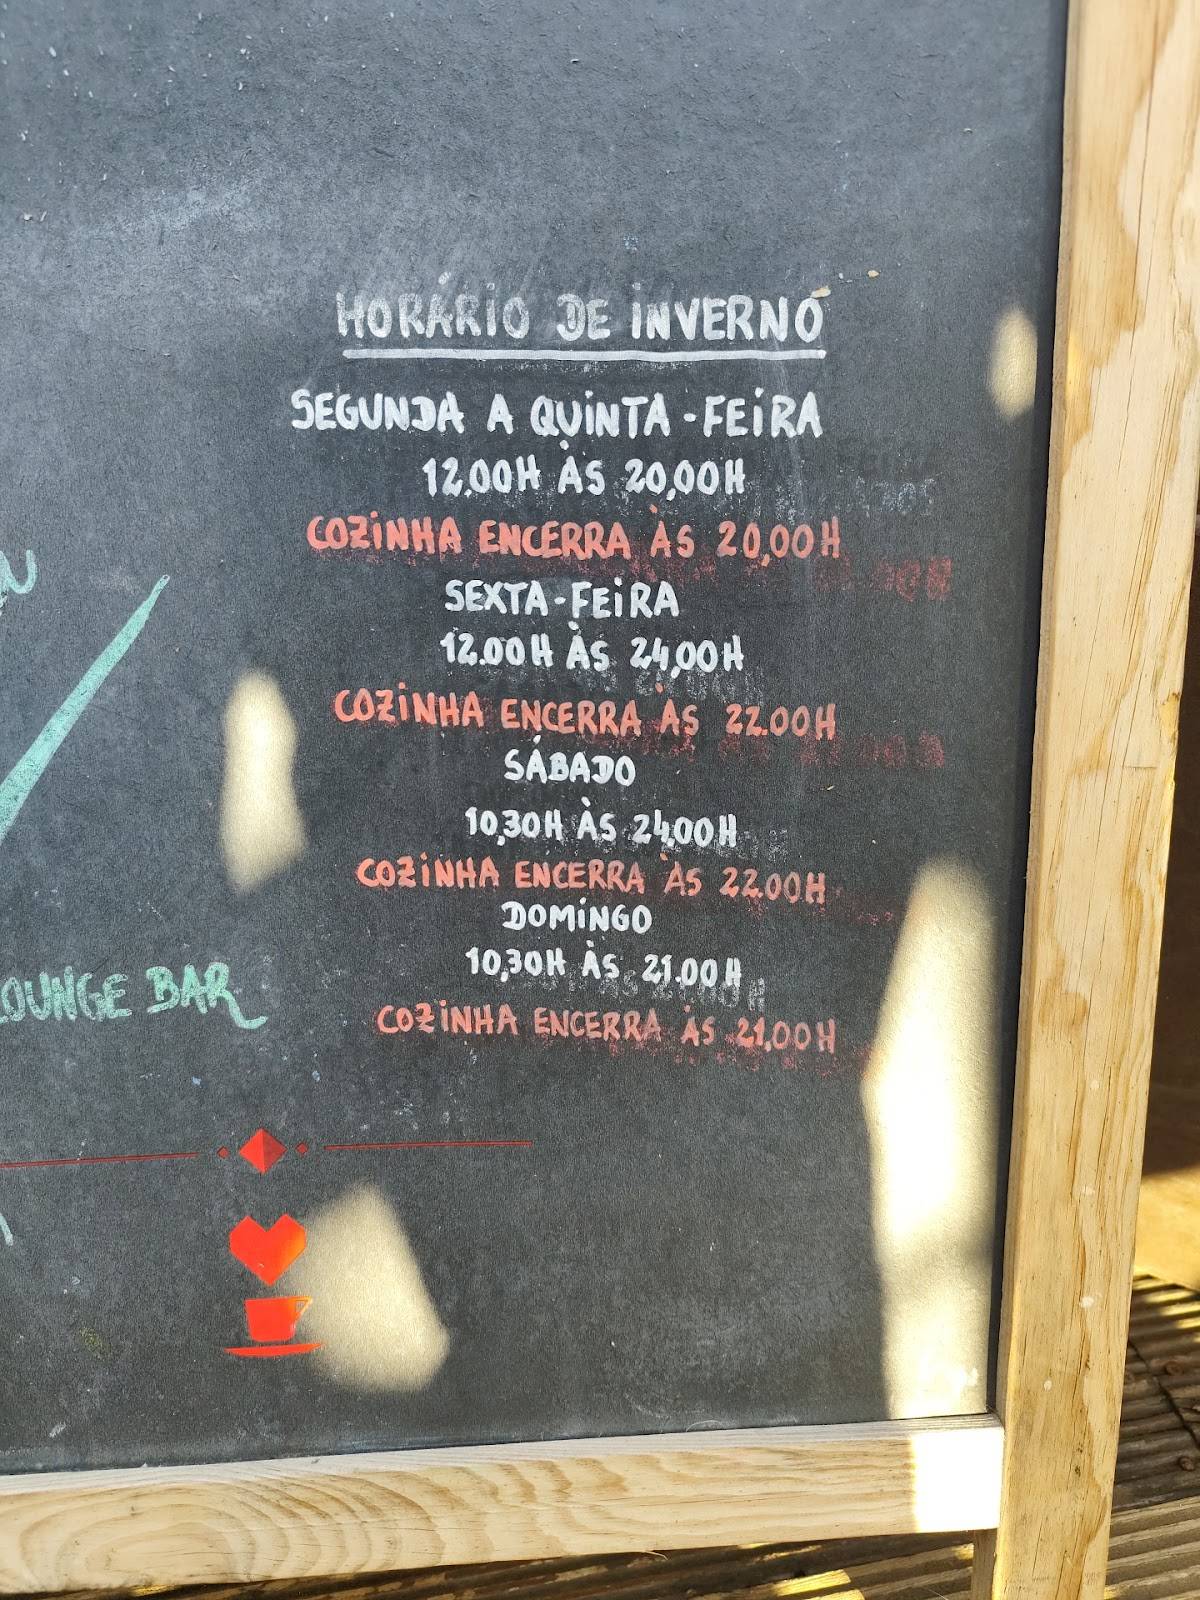 HORÁRIO DE INVERNO
SEGUNDA A QUINTA-FEIRA
12.00H ÀS 20,00H
COZINHA ENCERRA ÀS 20,00H
SEXTA-FEIRA
12.00H ÀS 24,00H
COZINHA ENCERRA ÀS 22.00H
SÁBADO
10,30H ÀS 24,00H
COZINHA ENCERRA ÀS 22.00H
DOMINGO
10,30H ÀS 21.00H
COZINHA ENCERRA ÀS 21,00H
LOUNGE BAR